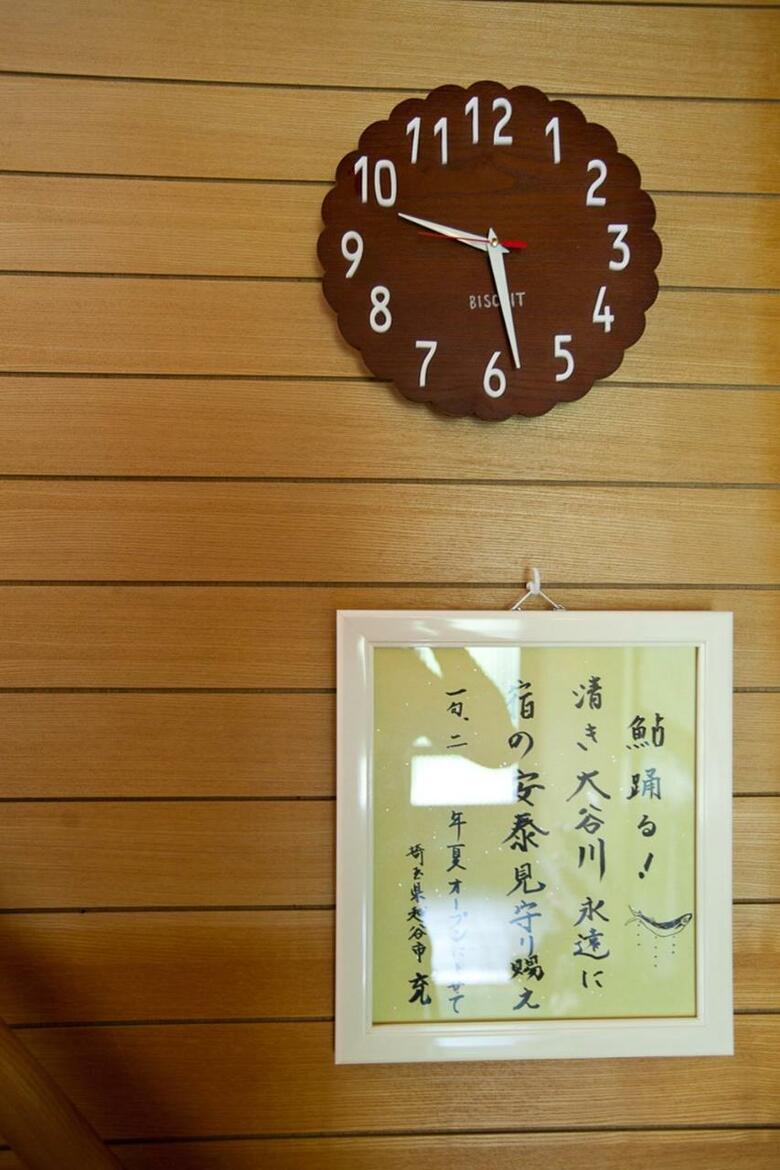 11 12 1
10 2
9 3
8 4
7 6 5
BISCUIT
鮎踊る!
清き大谷川永遠に
宿の安泰見守り賜え
一句、二 年夏オープンによせて
埼玉県越谷市 充